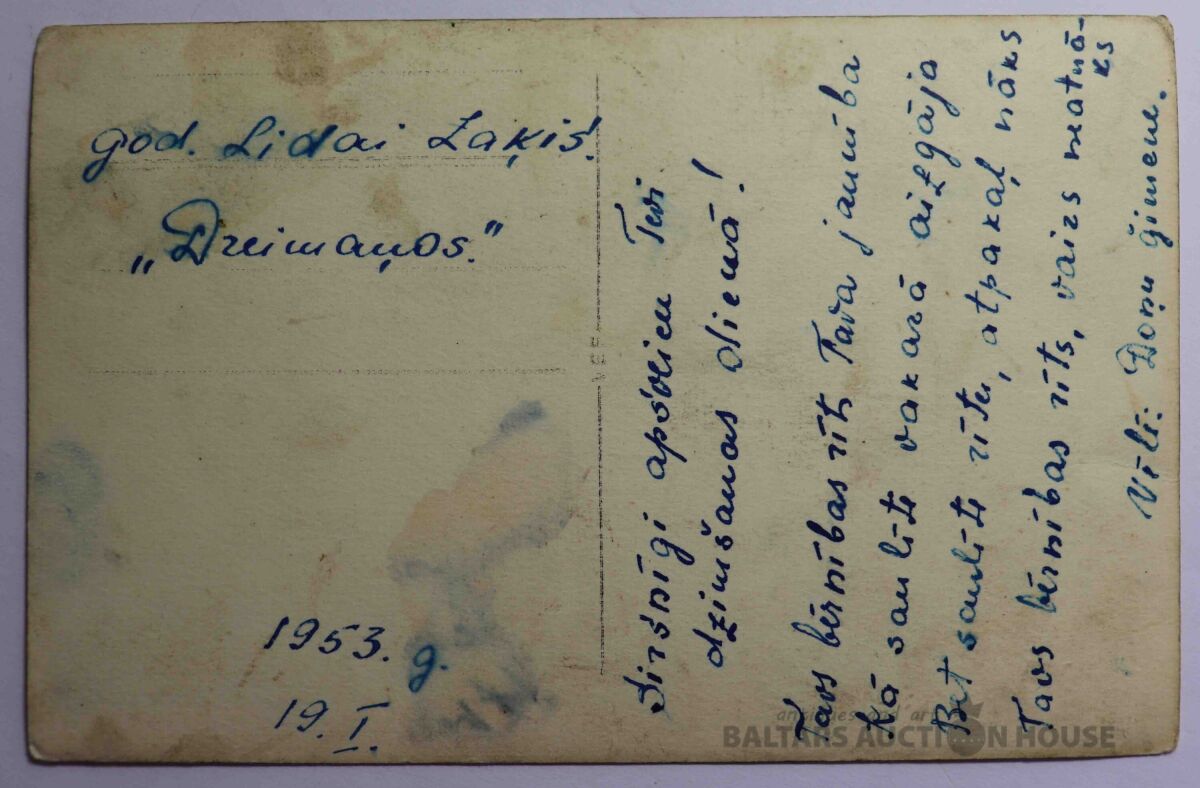 god. Lidai Zaķis.
„Dreimaņos."
1953. g.
19. I.
Sirsnīgi apsveicu Tevi
dzimšanas dienā!
Tavs bērnības rīts Tava jaunība
Kā saulīte vakarā aizgāja
Bet saulīte rītu, atpakaļ nāks
Tavs bērnības rīts, vairs matnā-
ks
Vēlī: Doņu ģimene.
antiques and art
BALTARS AUCTION HOUSE